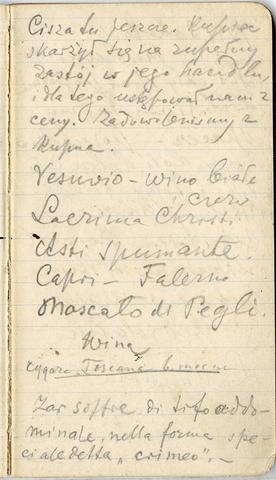 Cisza tu jeszcze. Kupiec
skarżył się na zupełny
zastój w jego handlu
i dlatego ustępował nam z
ceny. Zadowoleniśmy z
kupna.
Vesuvio - wino białe
Lacrima Christi
Asti spumante.
Capri - Falerno
Moscato di Pegli.
Wina
cygara Toscana
Zar soffre di tifo addo-
minale, nella forma spe-
ciale detta „crimeo”. -